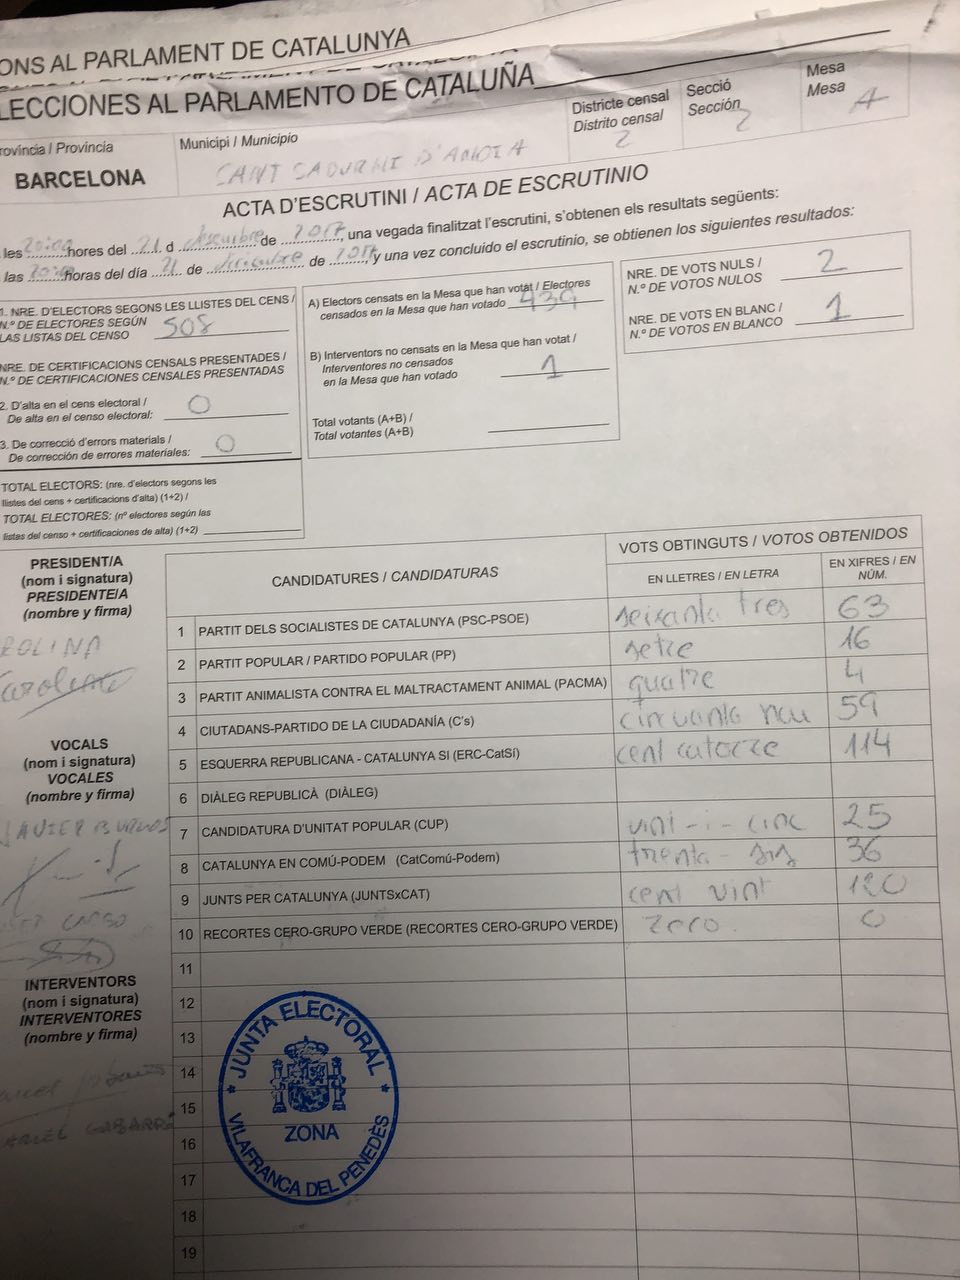 ONS AL PARLAMENT DE CATALUNYA
LECCIONES AL PARLAMENTO DE CATALUÑA
rovíncia / Provincia
BARCELONA
Municipi / Municipio
SANT SADURNI D'ANOIA
Districte censal
Distrito censal
2
Secció
Sección
2
Mesa
Mesa
A
ACTA D'ESCRUTINI / ACTA DE ESCRUTINIO
les hores del 21 d desembre de 2017, una vegada finalitzat l'escrutini, s'obtenen els resultats següents:
las horas del día 21 de diciembre de 2017, y una vez concluido el escrutinio, se obtienen los siguientes resultados:
1. NRE. D'ELECTORS SEGONS LES LLISTES DEL CENS /
N.º DE ELECTORES SEGÚN
LAS LISTAS DEL CENSO 508
NRE. DE CERTIFICACIONS CENSALS PRESENTADES /
N.º DE CERTIFICACIONES CENSALES PRESENTADAS
2. D'alta en el cens electoral /
De alta en el censo electoral: 0
3. De correcció d'errors materials /
De corrección de errores materiales: 0
TOTAL ELECTORS: (nre. d'electors segons les
llistes del cens + certificacions d'alta) (1+2) /
TOTAL ELECTORES: (nº electores según las
listas del censo + certificaciones de alta) (1+2)
A) Electors censats en la Mesa que han votat / Electores
censados en la Mesa que han votado 439
B) Interventors no censats en la Mesa que han votat /
Interventores no censados
en la Mesa que han votado 1
Total votants (A+B) /
Total votantes (A+B)
NRE. DE VOTS NULS /
N.º DE VOTOS NULOS 2
NRE. DE VOTS EN BLANC /
N.º DE VOTOS EN BLANCO 1
PRESIDENT/A
(nom i signatura)
PRESIDENTE/A
(nombre y firma)
ROLINA
VOCALS
(nom i signatura)
VOCALES
(nombre y firma)
JAVIER BURGOS
INTERVENTORS
(nom i signatura)
INTERVENTORES
(nombre y firma)
GABARRÓ
CANDIDATURES / CANDIDATURAS
VOTS OBTINGUTS / VOTOS OBTENIDOS
EN LLETRES / EN LETRA
EN XIFRES / EN NÚM.
1 PARTIT DELS SOCIALISTES DE CATALUNYA (PSC-PSOE) seixanta tres 63
2 PARTIT POPULAR / PARTIDO POPULAR (PP) setze 16
3 PARTIT ANIMALISTA CONTRA EL MALTRACTAMENT ANIMAL (PACMA) quatre 4
4 CIUTADANS-PARTIDO DE LA CIUDADANÍA (C's) cinquanta nou 59
5 ESQUERRA REPUBLICANA - CATALUNYA SI (ERC-CatSí) cent catorze 114
6 DIÀLEG REPUBLICÀ (DIÀLEG)
7 CANDIDATURA D'UNITAT POPULAR (CUP) vint-i-cinc 25
8 CATALUNYA EN COMÚ-PODEM (CatComú-Podem) trenta-sis 36
9 JUNTS PER CATALUNYA (JUNTSxCAT) cent vint 120
10 RECORTES CERO-GRUPO VERDE (RECORTES CERO-GRUPO VERDE) Zero. 0
11
12
13
14
15
16
17
18
19
JUNTA ELECTORAL
ZONA
VILAFRANCA DEL PENEDÈS